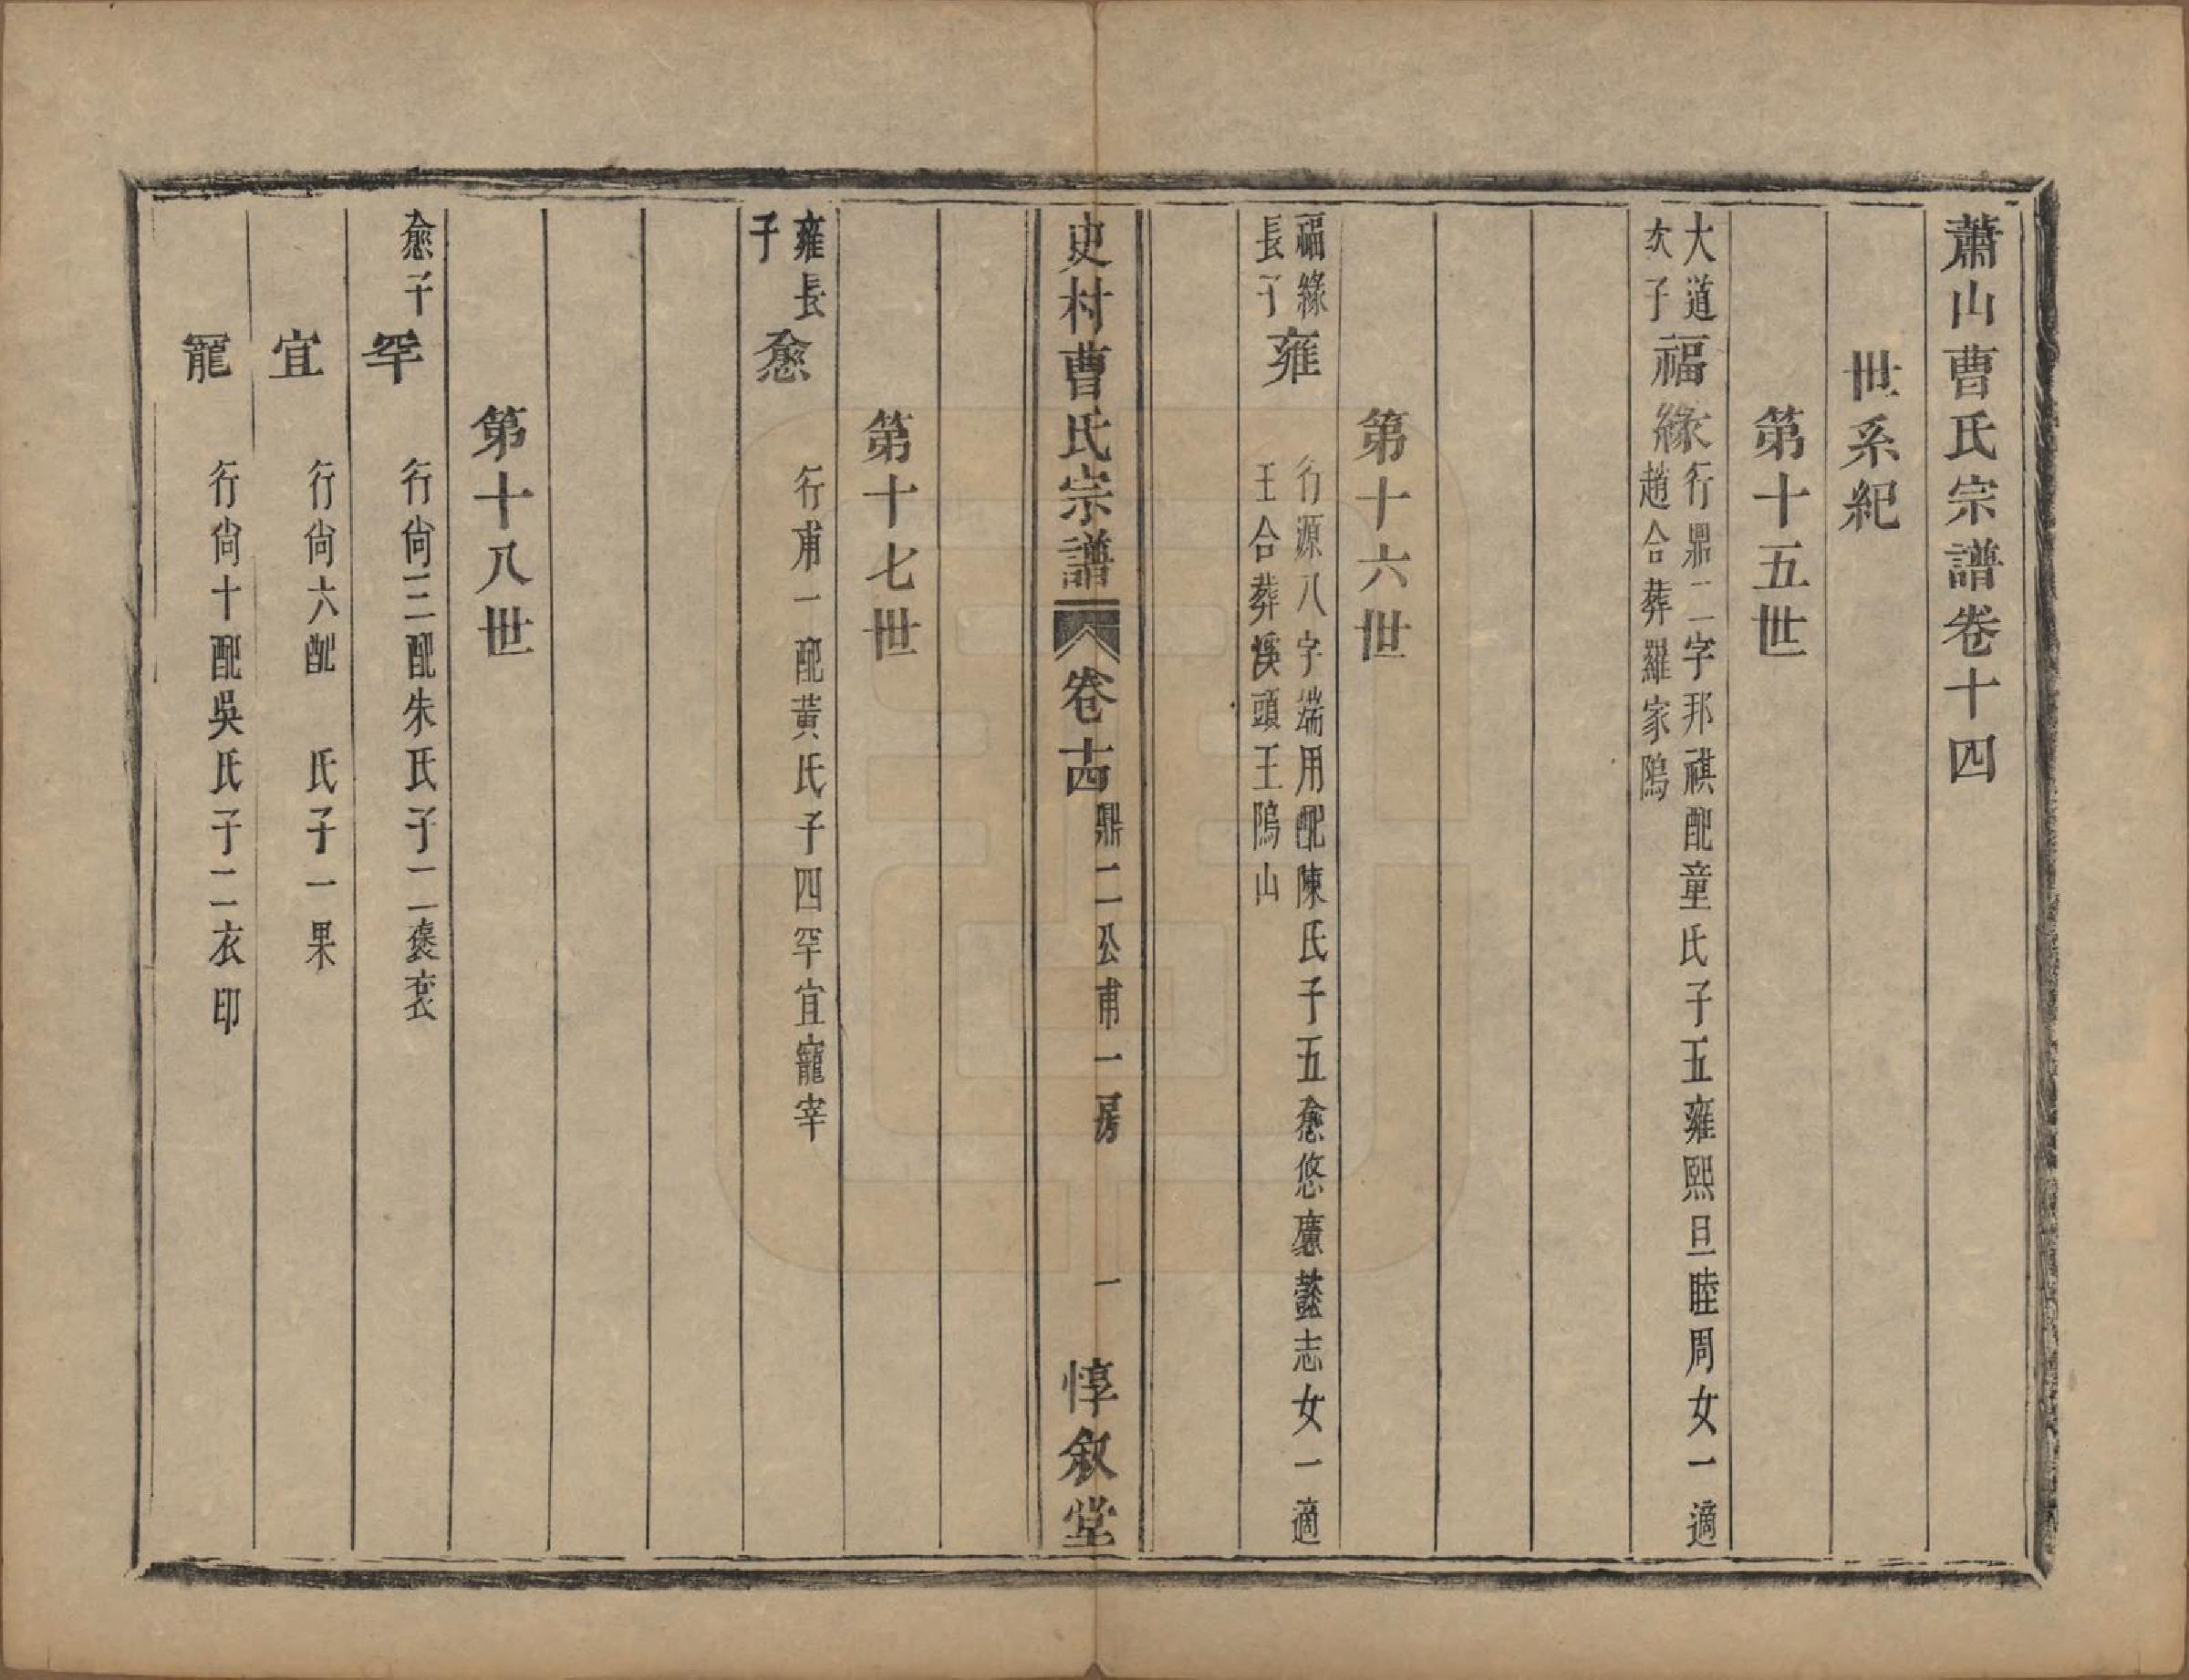 蕭山曹氏宗譜卷十四
世系紀
第十五世
大道
次子
福緣
行鼎二字邦祺配童氏子五雍熙旦睦周女一適
趙合葬羅家隖
第十六世
福緣
長子
雍
行源八字端用配陳氏子五悆悠應懿志女一適
王合葬溪頭王隖山
史村曹氏宗譜
卷十四
鼎二公甫一房
一
惇敘堂
第十七世
雍長
子
悆
行甫一配黃氏子四罕宜寵宰
第十八世
悆子
罕
行尙三配朱氏子二褒袠
宜
行尙六配　氏子一果
寵
行尙十配吳氏子二衣印